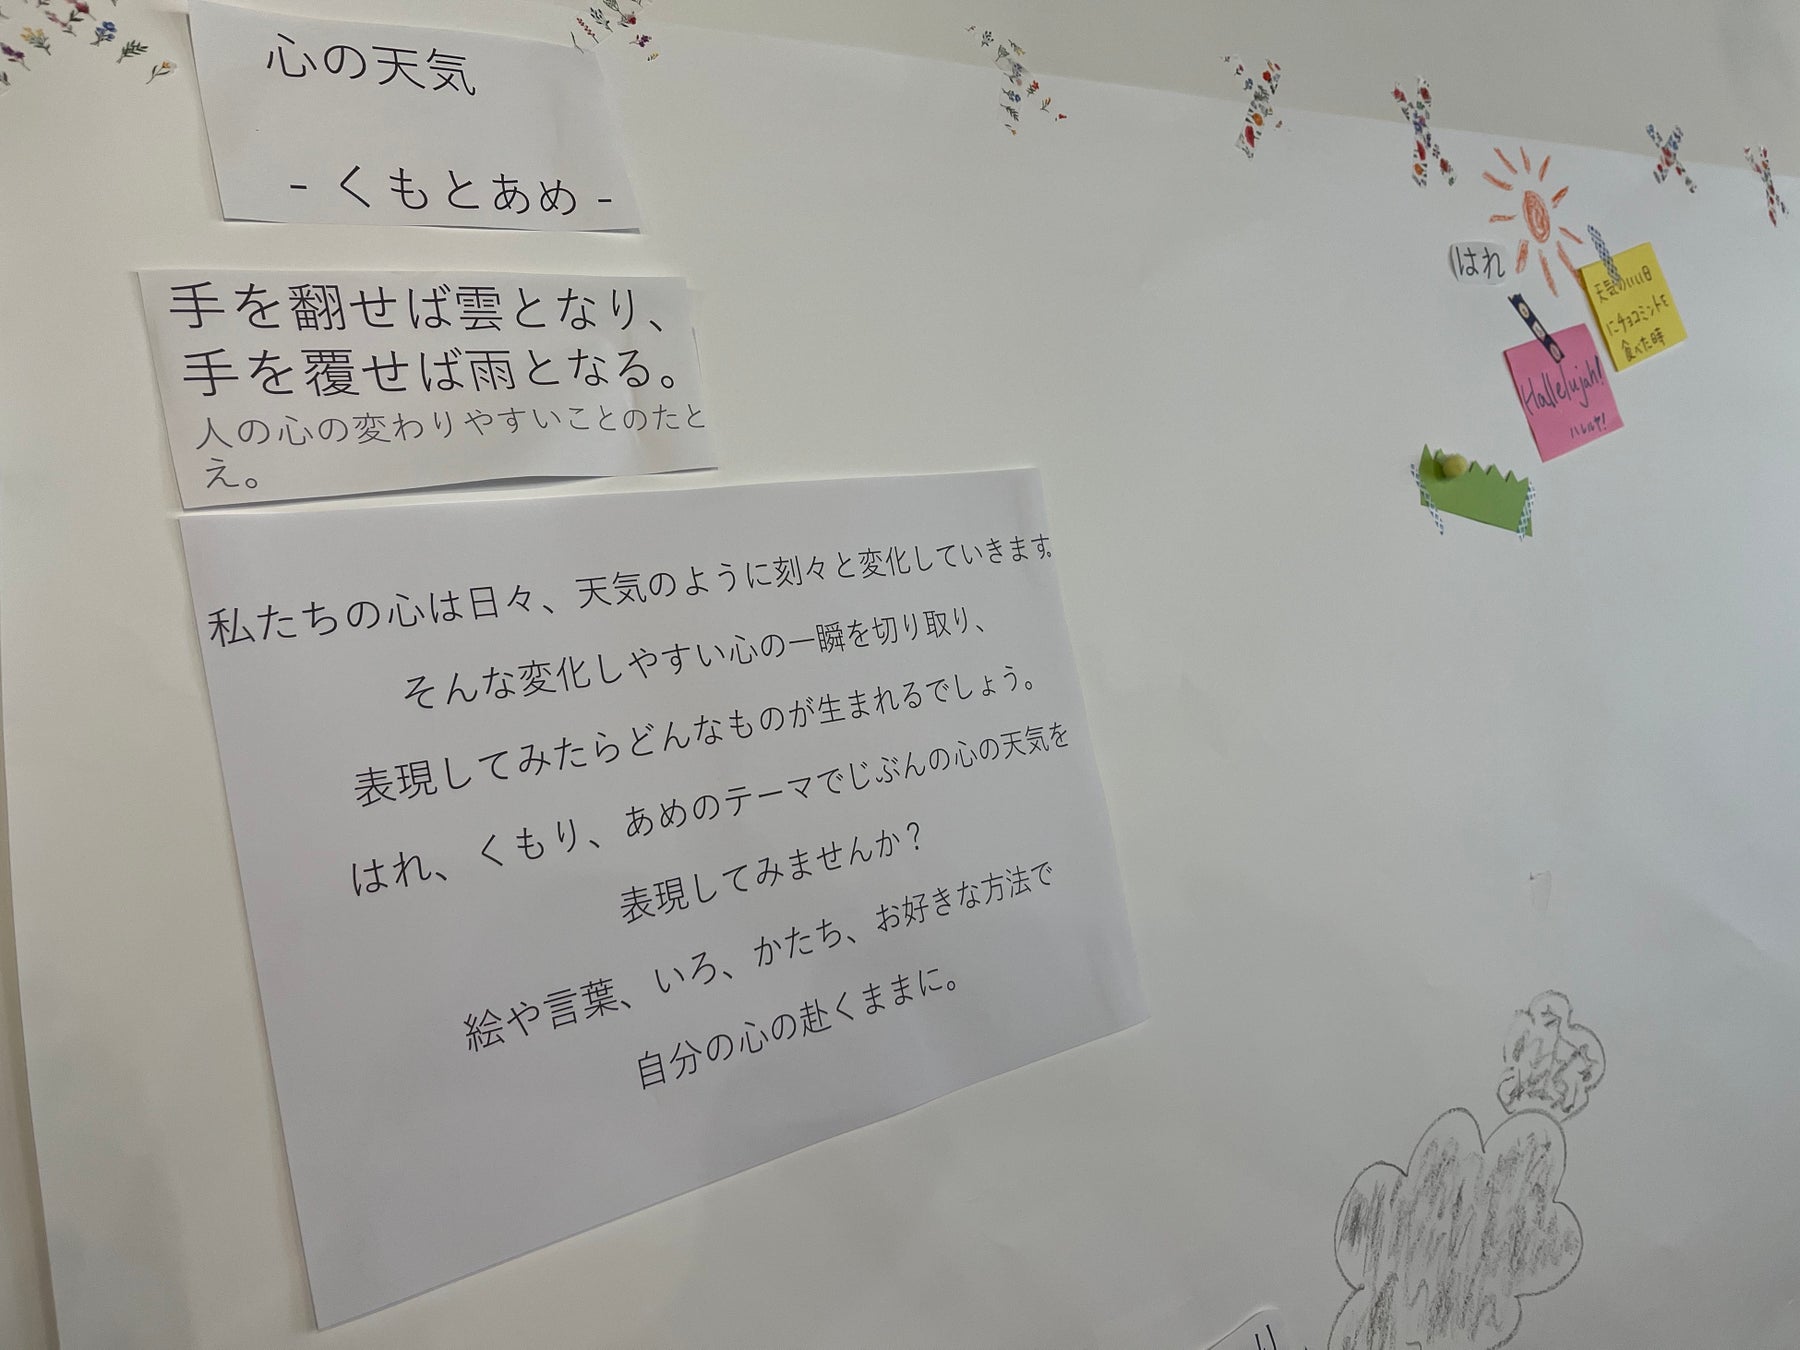 心の天気
- くもとあめ -
手を翻せば雲となり、
手を覆せば雨となる。
人の心の変わりやすいことのたと
え。
私たちの心は日々、天気のように刻々と変化していきます。
そんな変化しやすい心の一瞬を切り取り、
表現してみたらどんなものが生まれるでしょう。
はれ、くもり、あめのテーマでじぶんの心の天気を
表現してみませんか？
絵や言葉、いろ、かたち、お好きな方法で
自分の心の赴くままに。
はれ
天気のいい日
にチョコミントを
食べた時
Hallelujah!
ハレルヤ!
り